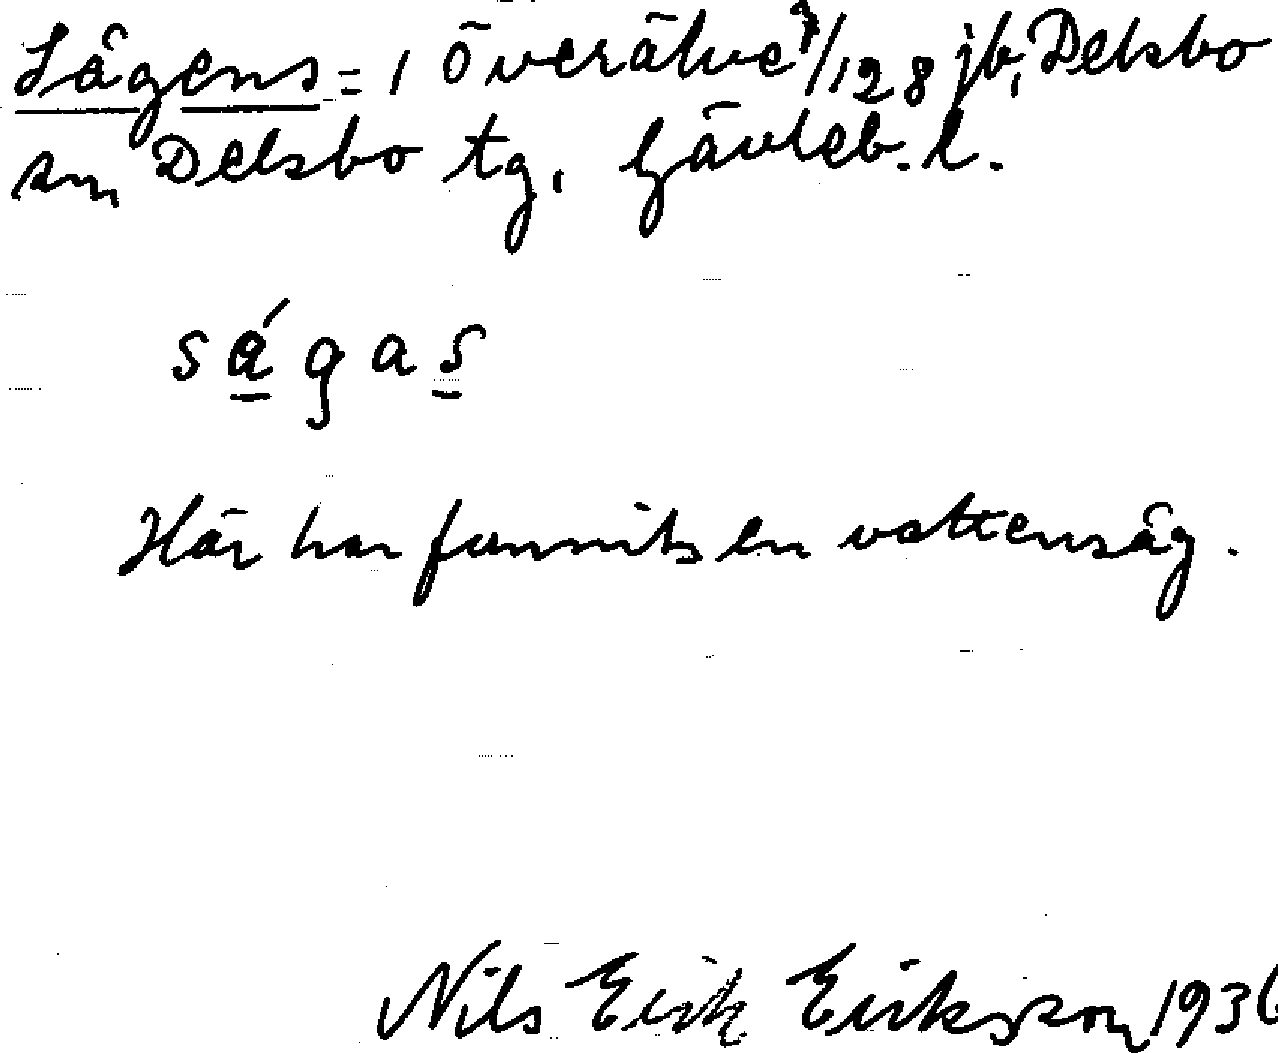 Sågens = 1 Överälve 7/128 jb, Delsbo
sn Delsbo tg, Gävleb. l.
ságas
Här har funnits en vattensåg.
Nils Erik Eriksson 1936